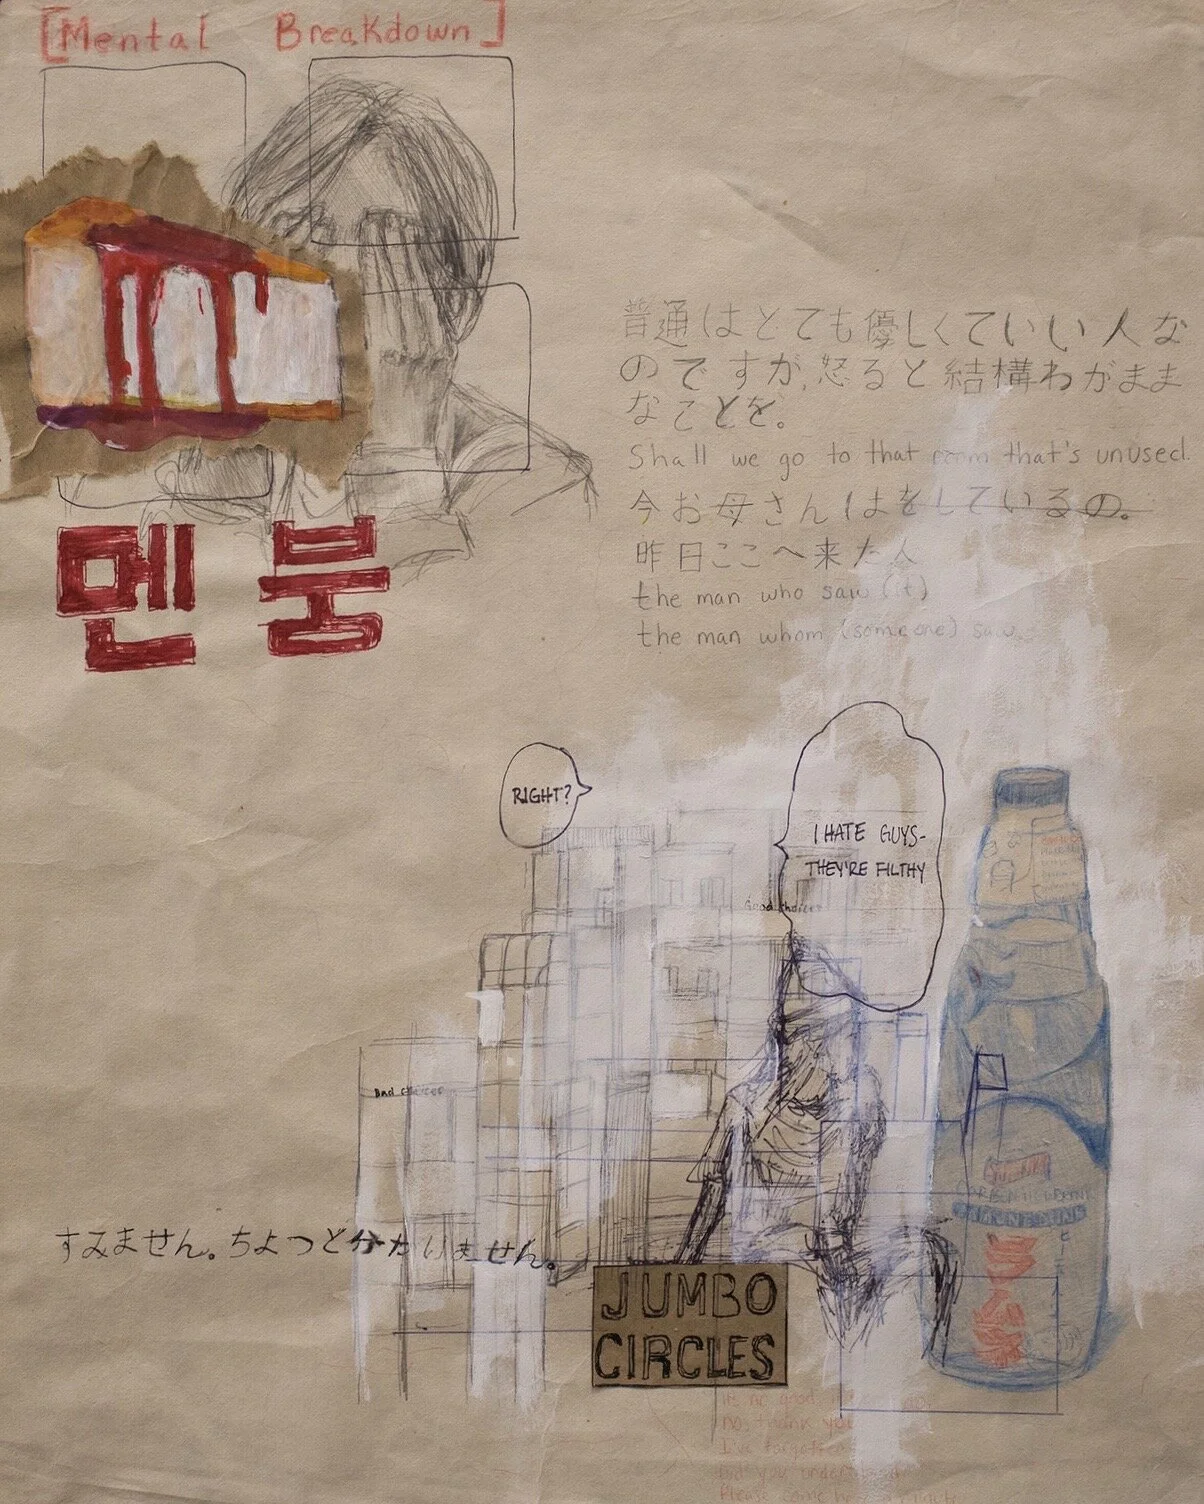 [Mental Breakdown]
멘붕
普通はとても優しくていい人な
のですが、怒ると結構わがまま
なことを。
Shall we go to that room that's unused.
今お母さんはをしているの。
昨日ここへ来た人
the man who saw (it)
the man whom (someone) saw
RIGHT?
I HATE GUYS-
THEY'RE FILTHY
Good choices
Bad choices
すみません。ちょっと分かりません。
JUMBO
CIRCLES
no, thank you
I've
Please come here